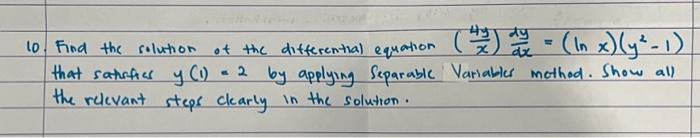 10. Find the solution of the differential equation (4y/x) dy/dx = (ln x)(y² - 1)
that satisfies y(1) = 2 by applying Separable Variables method. Show all
the relevant steps clearly in the solution.